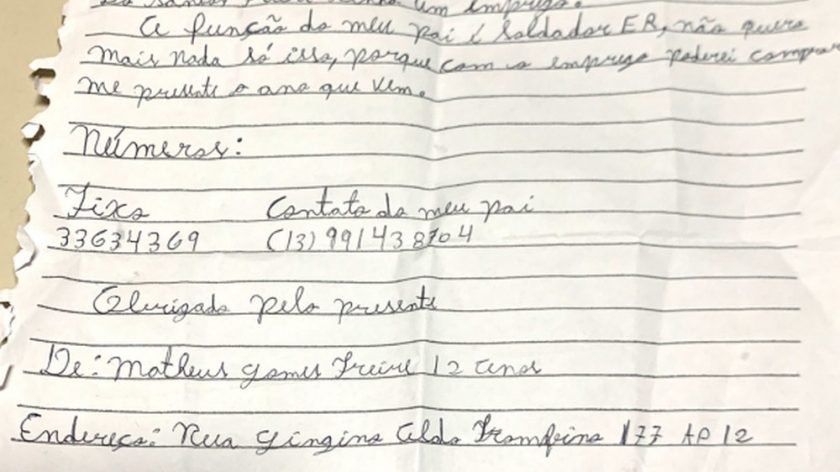 um emprego.
A função do meu pai é Soldador ER, não quero
mais nada só isso, porque com o emprego poderei comprar
me presente o ano que vem.
Números:
Fixo Contato do meu pai
33634369 (13) 991438704
Obrigado pelo presente
De: Matheus Gomes Freire 12 anos
Endereço: Rua Aldo 177 AP 12